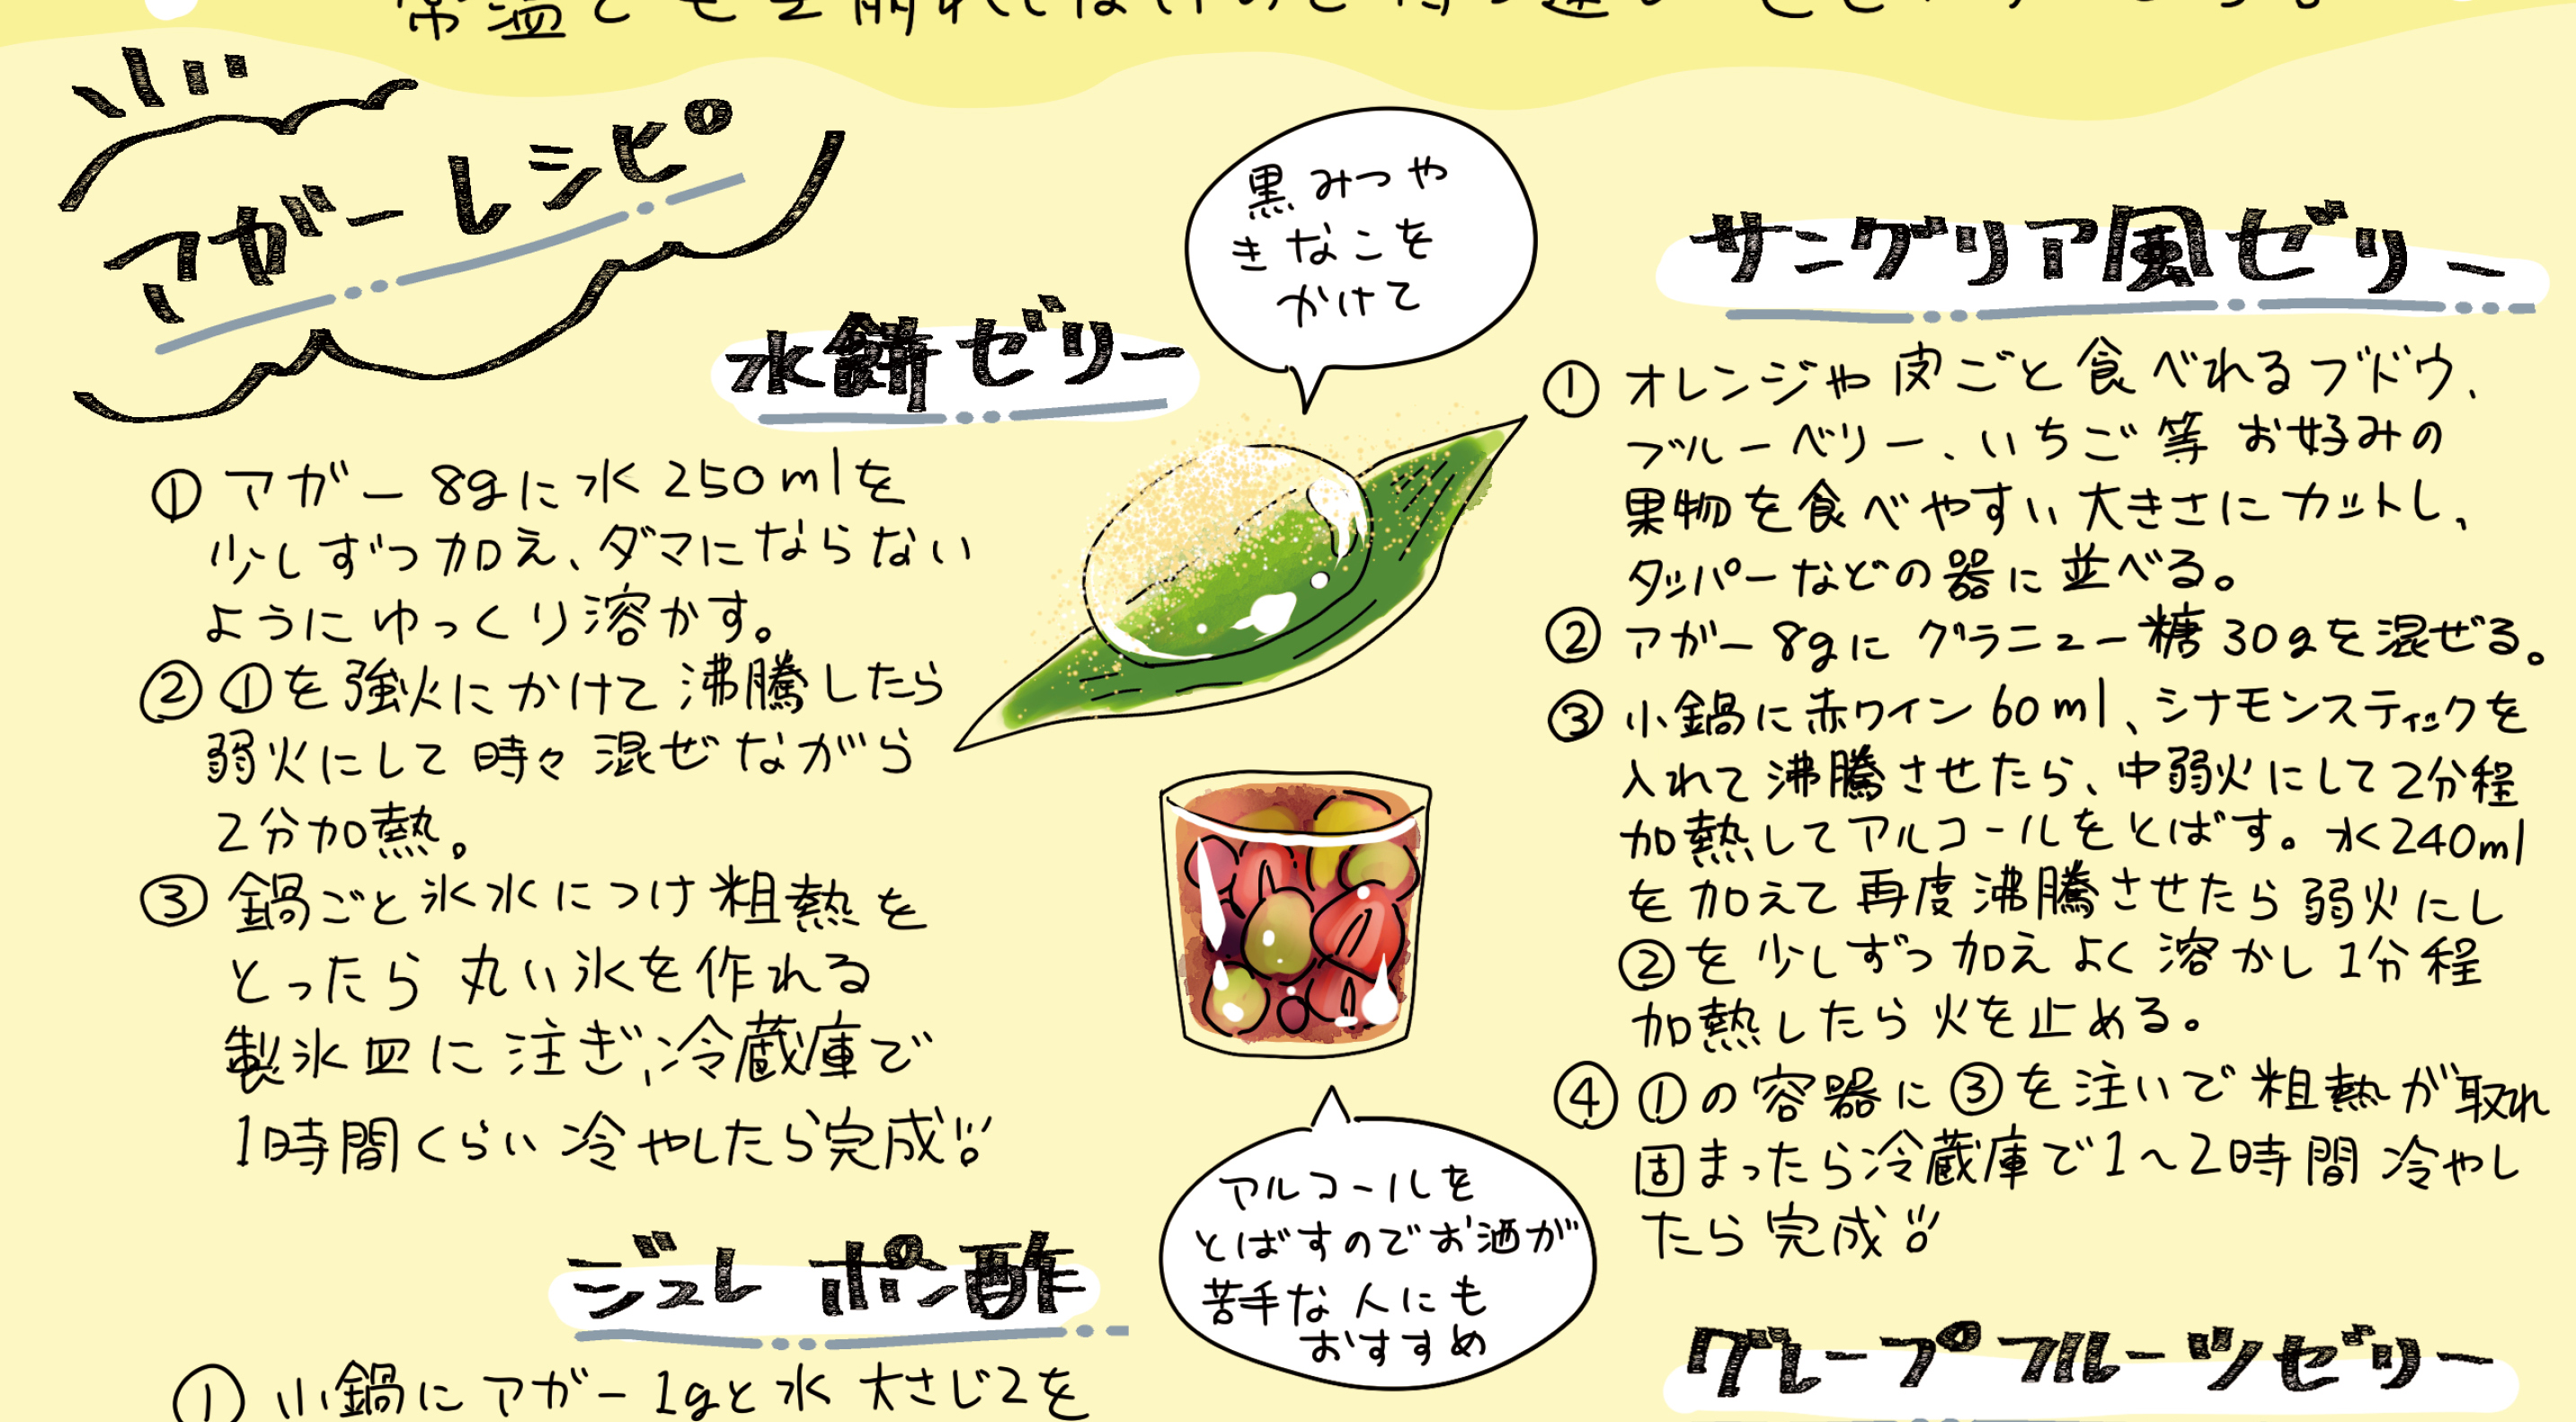 アガーレシピ
水餅ゼリー
①アガー8gに水250mlを
少しずつ加え、ダマにならない
ようにゆっくり溶かす。
②①を強火にかけて沸騰したら
弱火にして時々混ぜながら
2分加熱。
③鍋ごと氷水につけ粗熱を
とったら丸い氷を作れる
製氷皿に注ぎ、冷蔵庫で
1時間くらい冷やしたら完成!!
黒みつや
きなこを
かけて
アルコールを
とばすのでお酒が
苦手な人にも
おすすめ
ジュレポン酢
①小鍋にアガー1gと水大さじ2を
サングリア風ゼリー
①オレンジや皮ごと食べれるブドウ、
ブルーベリー、いちご等お好みの
果物を食べやすい大きさにカットし、
タッパーなどの器に並べる。
②アガー8gにグラニュー糖30gを混ぜる。
③小鍋に赤ワイン60ml、シナモンスティックを
入れて沸騰させたら、中弱火にして2分程
加熱してアルコールをとばす。水240ml
を加えて再度沸騰させたら弱火にし
②を少しずつ加えよく溶かし1分程
加熱したら火を止める。
④①の容器に③を注いで粗熱が取れ
固まったら冷蔵庫で1~2時間冷やし
たら完成!!
グレープフルーツゼリー